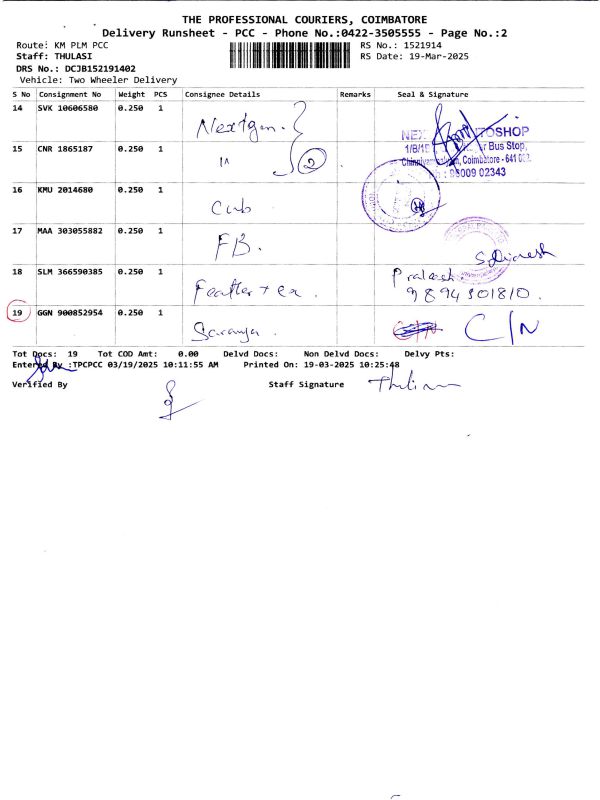 THE PROFESSIONAL COURIERS, COIMBATORE
Delivery Runsheet - PCC - Phone No.:0422-3505555 - Page No.:2
Route: KM PLM PCC RS No.: 1521914
Staff: THULASI RS Date: 19-Mar-2025
DRS No.: DCJB152191402
Vehicle: Two Wheeler Delivery
S No Consignment No Weight PCS Consignee Details Remarks Seal & Signature
14 SVK 10606580 0.250 1 Nextgen.
15 CNR 1865187 0.250 1 " 2
NEX TOSHOP
1/B/15 r Bus Stop,
Coimbatore - 641 0
09 02343
16 KMU 2014680 0.250 1 Cub
17 MAA 303055882 0.250 1 FB.
18 SLM 366590385 0.250 1 Prakash.
9894301810.
19 GGN 900852954 0.250 1 Saranya. C/N
Tot Docs: 19 Tot COD Amt: 0.00 Delvd Docs: Non Delvd Docs: Delvy Pts:
Entered By :TPCPCC 03/19/2025 10:11:55 AM Printed On: 19-03-2025 10:25:48
Verified By Staff Signature